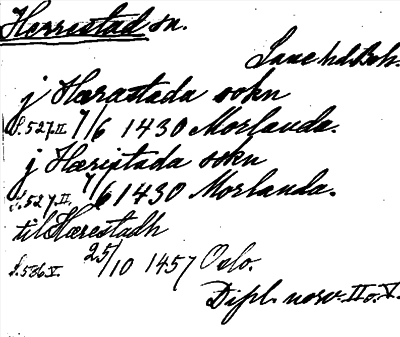 Herrestad sn.
Lane hd. Boh.
j Hærastada sokn
S. 527. II 7/6 1430 Morlanda.
j Hæristada sokn
S. 527. II. 7/6 1430 Morlanda.
til Hærestadh
S. 586. V. 25/10 1457 Oslo.
Dipl. norv. II o. V.